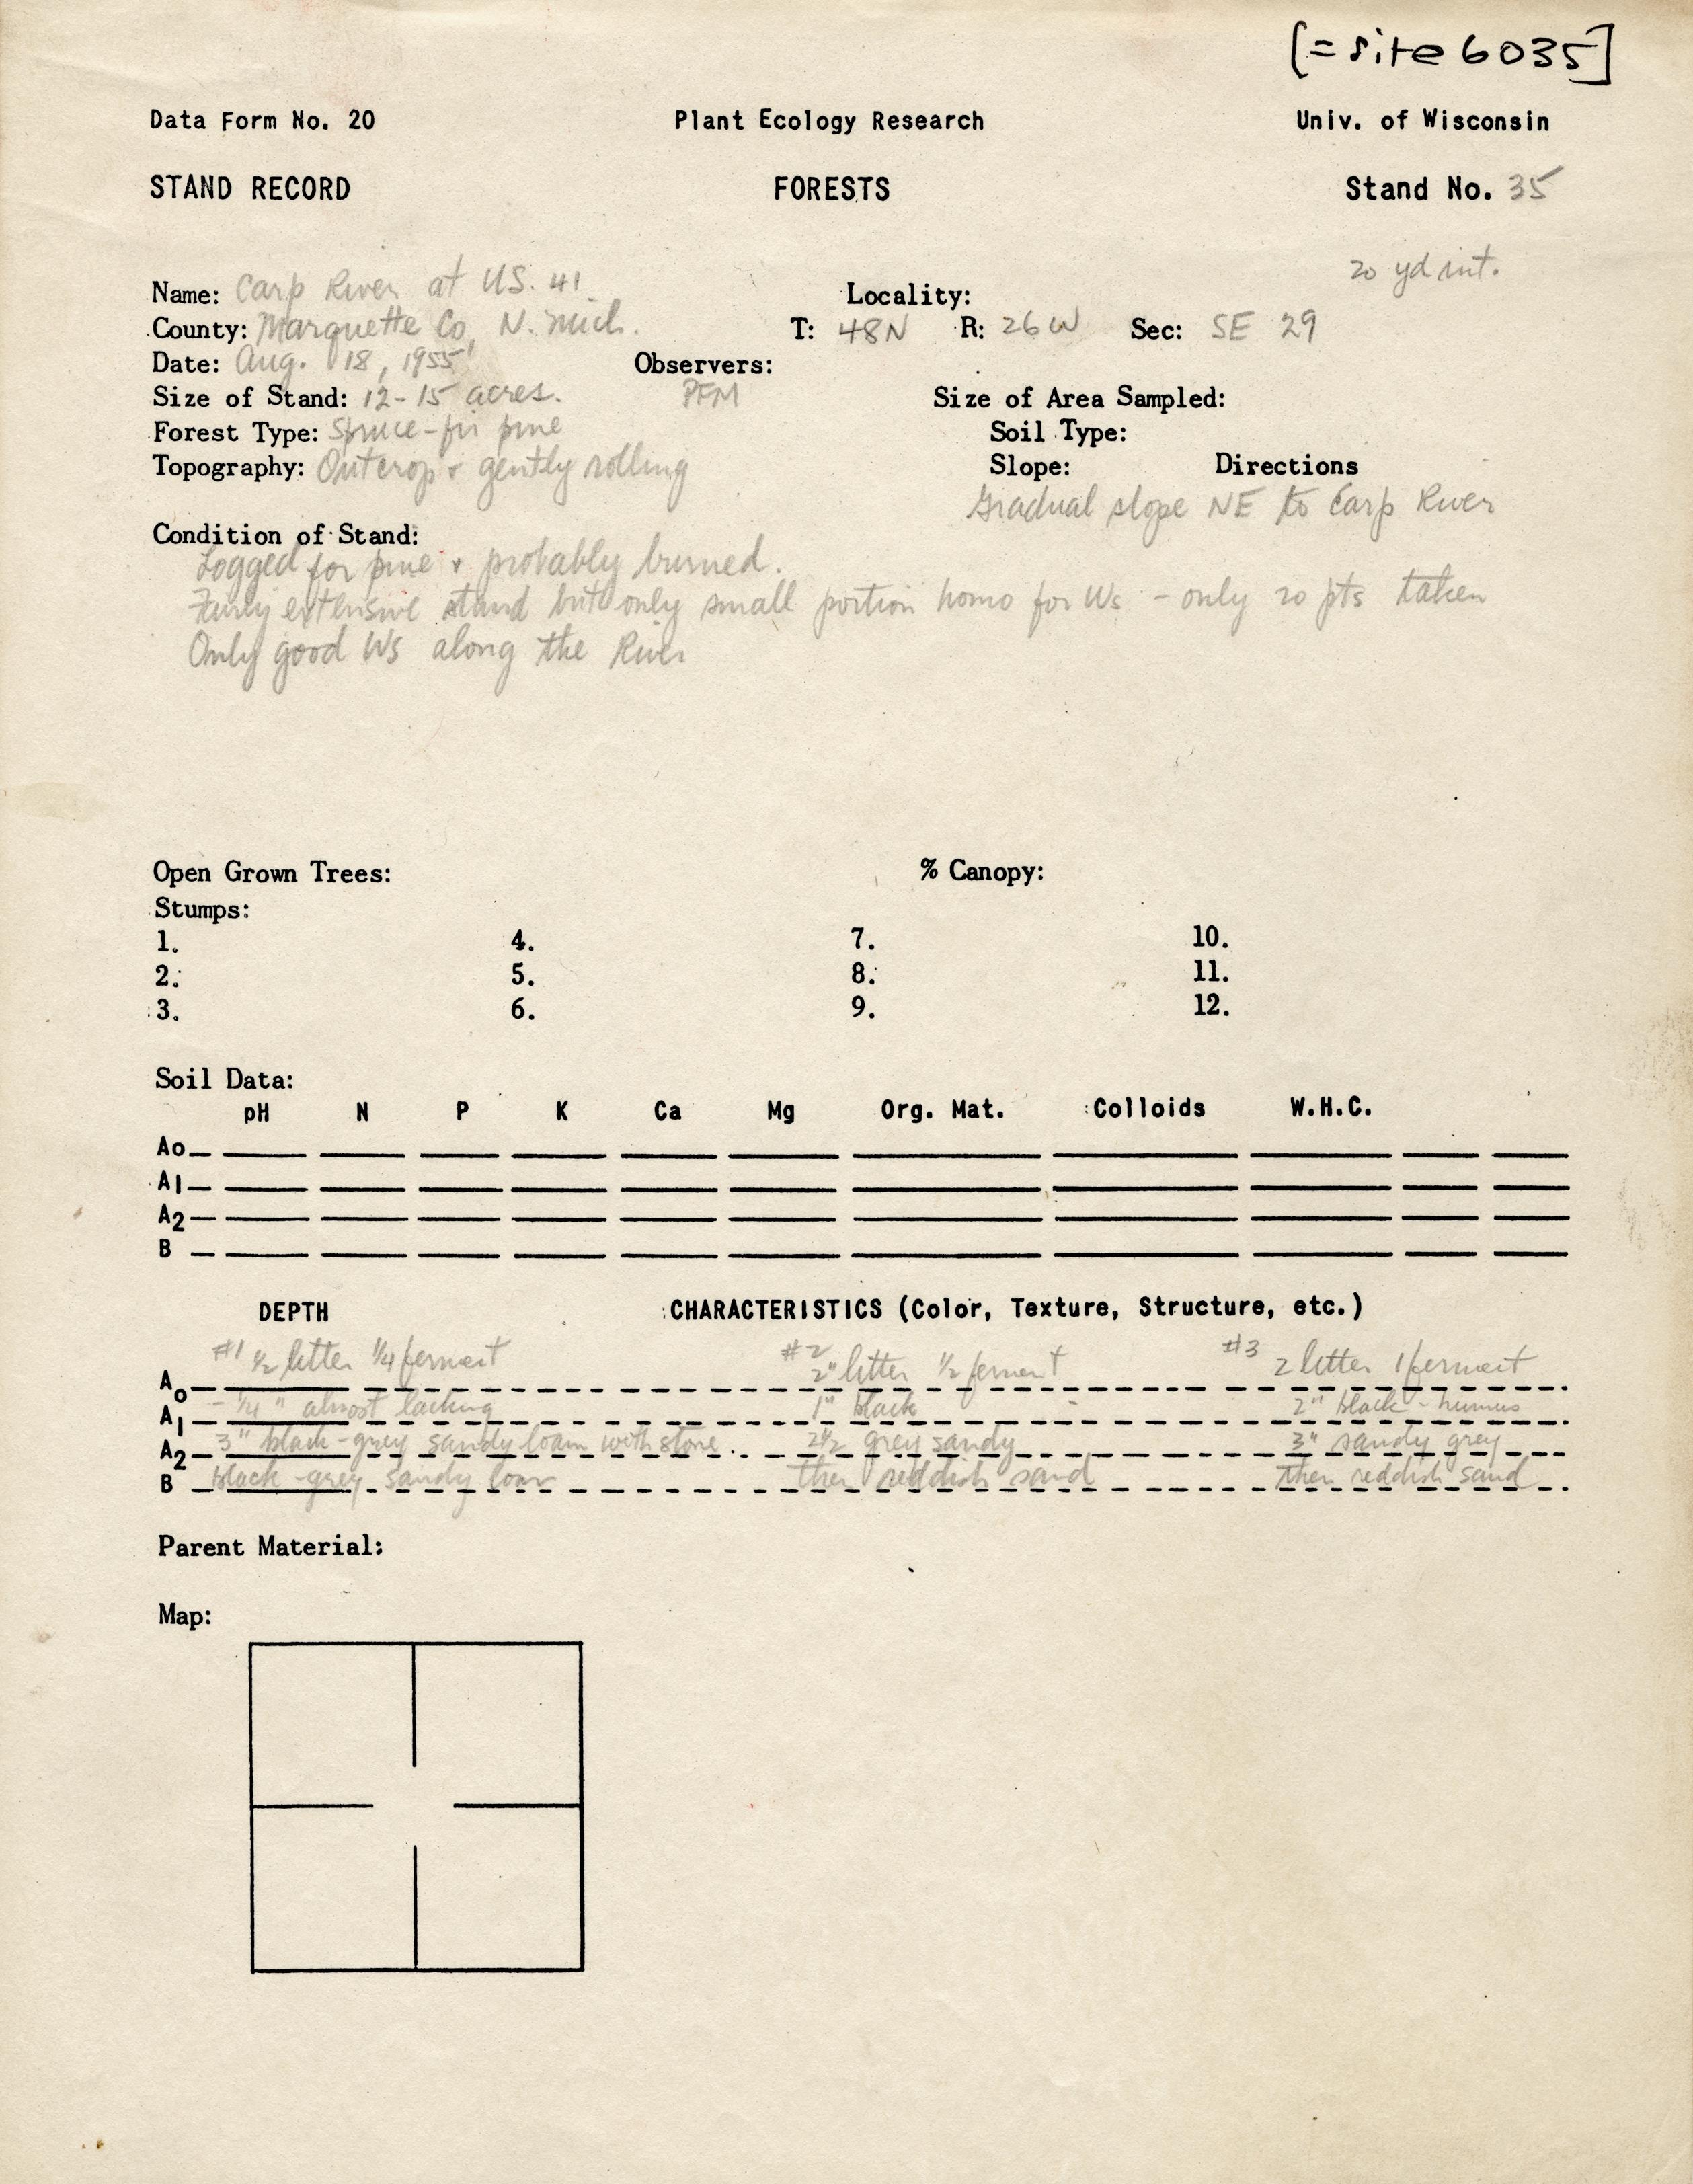 [= site 6035]
Data Form No. 20 Plant Ecology Research Univ. of Wisconsin
STAND RECORD FORESTS Stand No. 35
20 yd int.
Name: Carp River at US. 41 Locality:
County: Marquette Co, N. Mich. T: 48N R: 26W Sec: SE 29
Date: Aug. 18, 1955 Observers:
Size of Stand: 12-15 acres. PFM Size of Area Sampled:
Forest Type: Spruce-fir pine Soil Type:
Topography: Outcrop + gently rolling Slope: Directions
Gradual slope NE to Carp River
Condition of Stand:
Logged for pine + probably burned.
Fairly extensive stand but only small portion homo for Ws - only 20 pts taken
Only good Ws along the River
Open Grown Trees: % Canopy:
Stumps:
1. 4. 7. 10.
2. 5. 8. 11.
3. 6. 9. 12.
Soil Data:
pH N P K Ca Mg Org. Mat. Colloids W.H.C.
Ao
A1
A2
B
DEPTH CHARACTERISTICS (Color, Texture, Structure, etc.)
#1 ½ litter ¼ ferment #2 2" litter ½ ferment #3 2 litter 1 ferment
Ao
A1 - ¼" almost lacking 1" black 2" black - humus
A2 3" black-grey sandy loam with stone. 2½ grey sandy 3" sandy grey
B black-grey sandy loam then reddish sand then reddish sand
Parent Material:
Map: